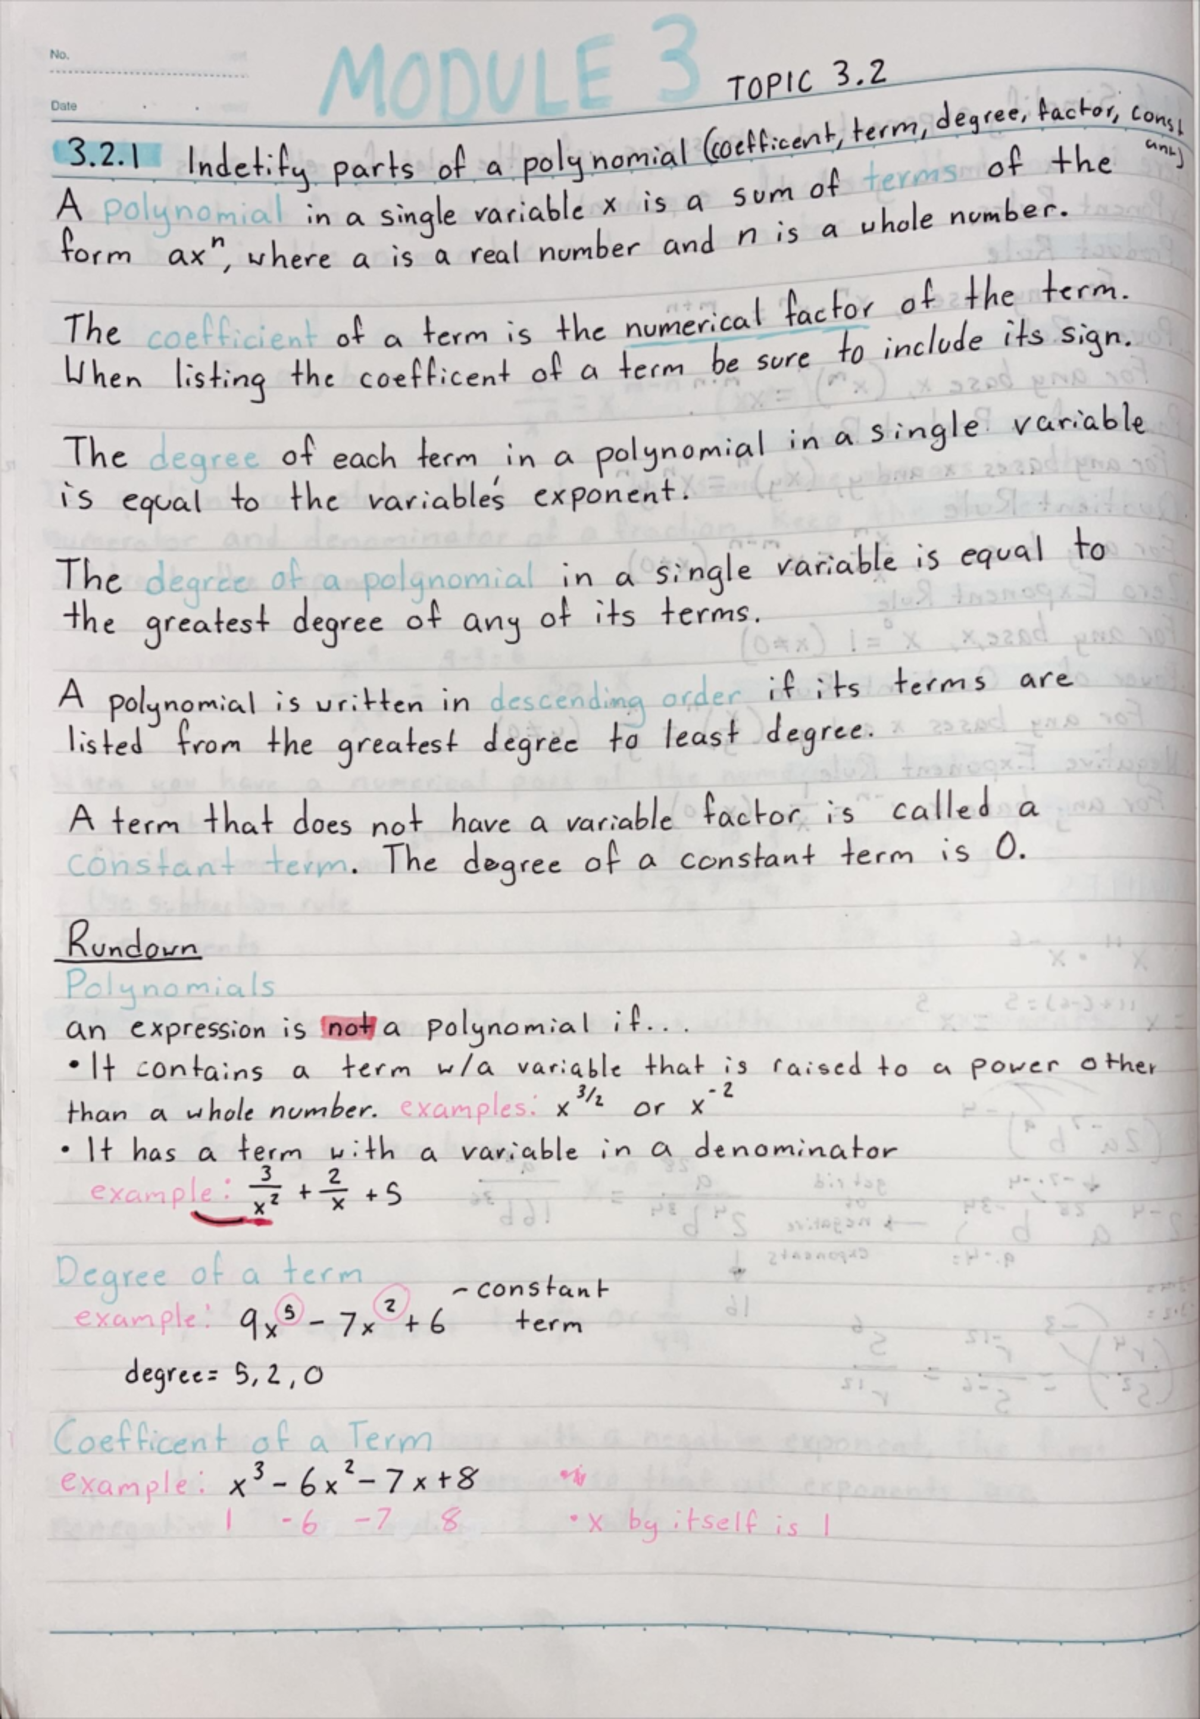 No.
MODULE 3 TOPIC 3.2
Date
3.2.1 Indetify parts of a polynomial (coefficent, term, degree, factor, const
ant)
A polynomial in a single variable x is a sum of terms of the
form axⁿ, where a is a real number and n is a whole number.
The coefficient of a term is the numerical factor of the term.
When listing the coefficent of a term be sure to include its sign.
The degree of each term in a polynomial in a single variable
is equal to the variable's exponent.
The degree of a polynomial in a single variable is equal to
the greatest degree of any of its terms.
A polynomial is written in descending order if its terms are
listed from the greatest degree to least degree.
A term that does not have a variable factor is called a
constant term. The degree of a constant term is 0.
Rundown
Polynomials
an expression is not a polynomial if...
• It contains a term w/a variable that is raised to a power other
than a whole number. examples: x^3/2 or x^-2
• It has a term with a variable in a denominator
example: 3/x² + 2/x + 5
Degree of a term
example: 9x⁵ - 7x² + 6 - constant
term
degree = 5, 2, 0
Coefficent of a Term
example: x³ - 6x² - 7x + 8
1 -6 -7 8 • x by itself is 1